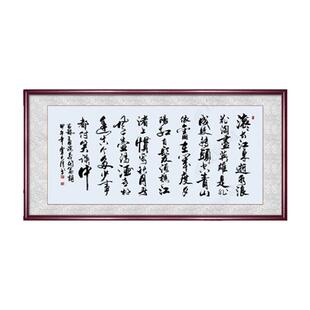 滚滚長江東逝水浪
花淘盡英雄是非
成敗轉頭空青山
依舊在幾度夕
陽紅白髮漁樵江
渚上慣看秋月春
風一壺濁酒喜相
逢古今多少事
都付笑談中